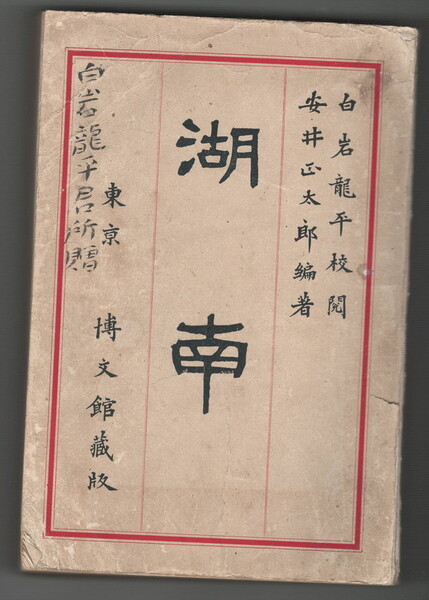 白岩龍平校閲
安井正太郎編著
湖南
東京 博文館藏版
白岩龍平君所贈